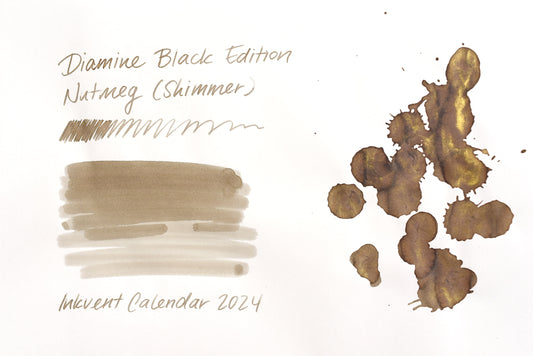 Diamine Black Edition
Nutmeg (Shimmer)
Inkvent Calendar 2024